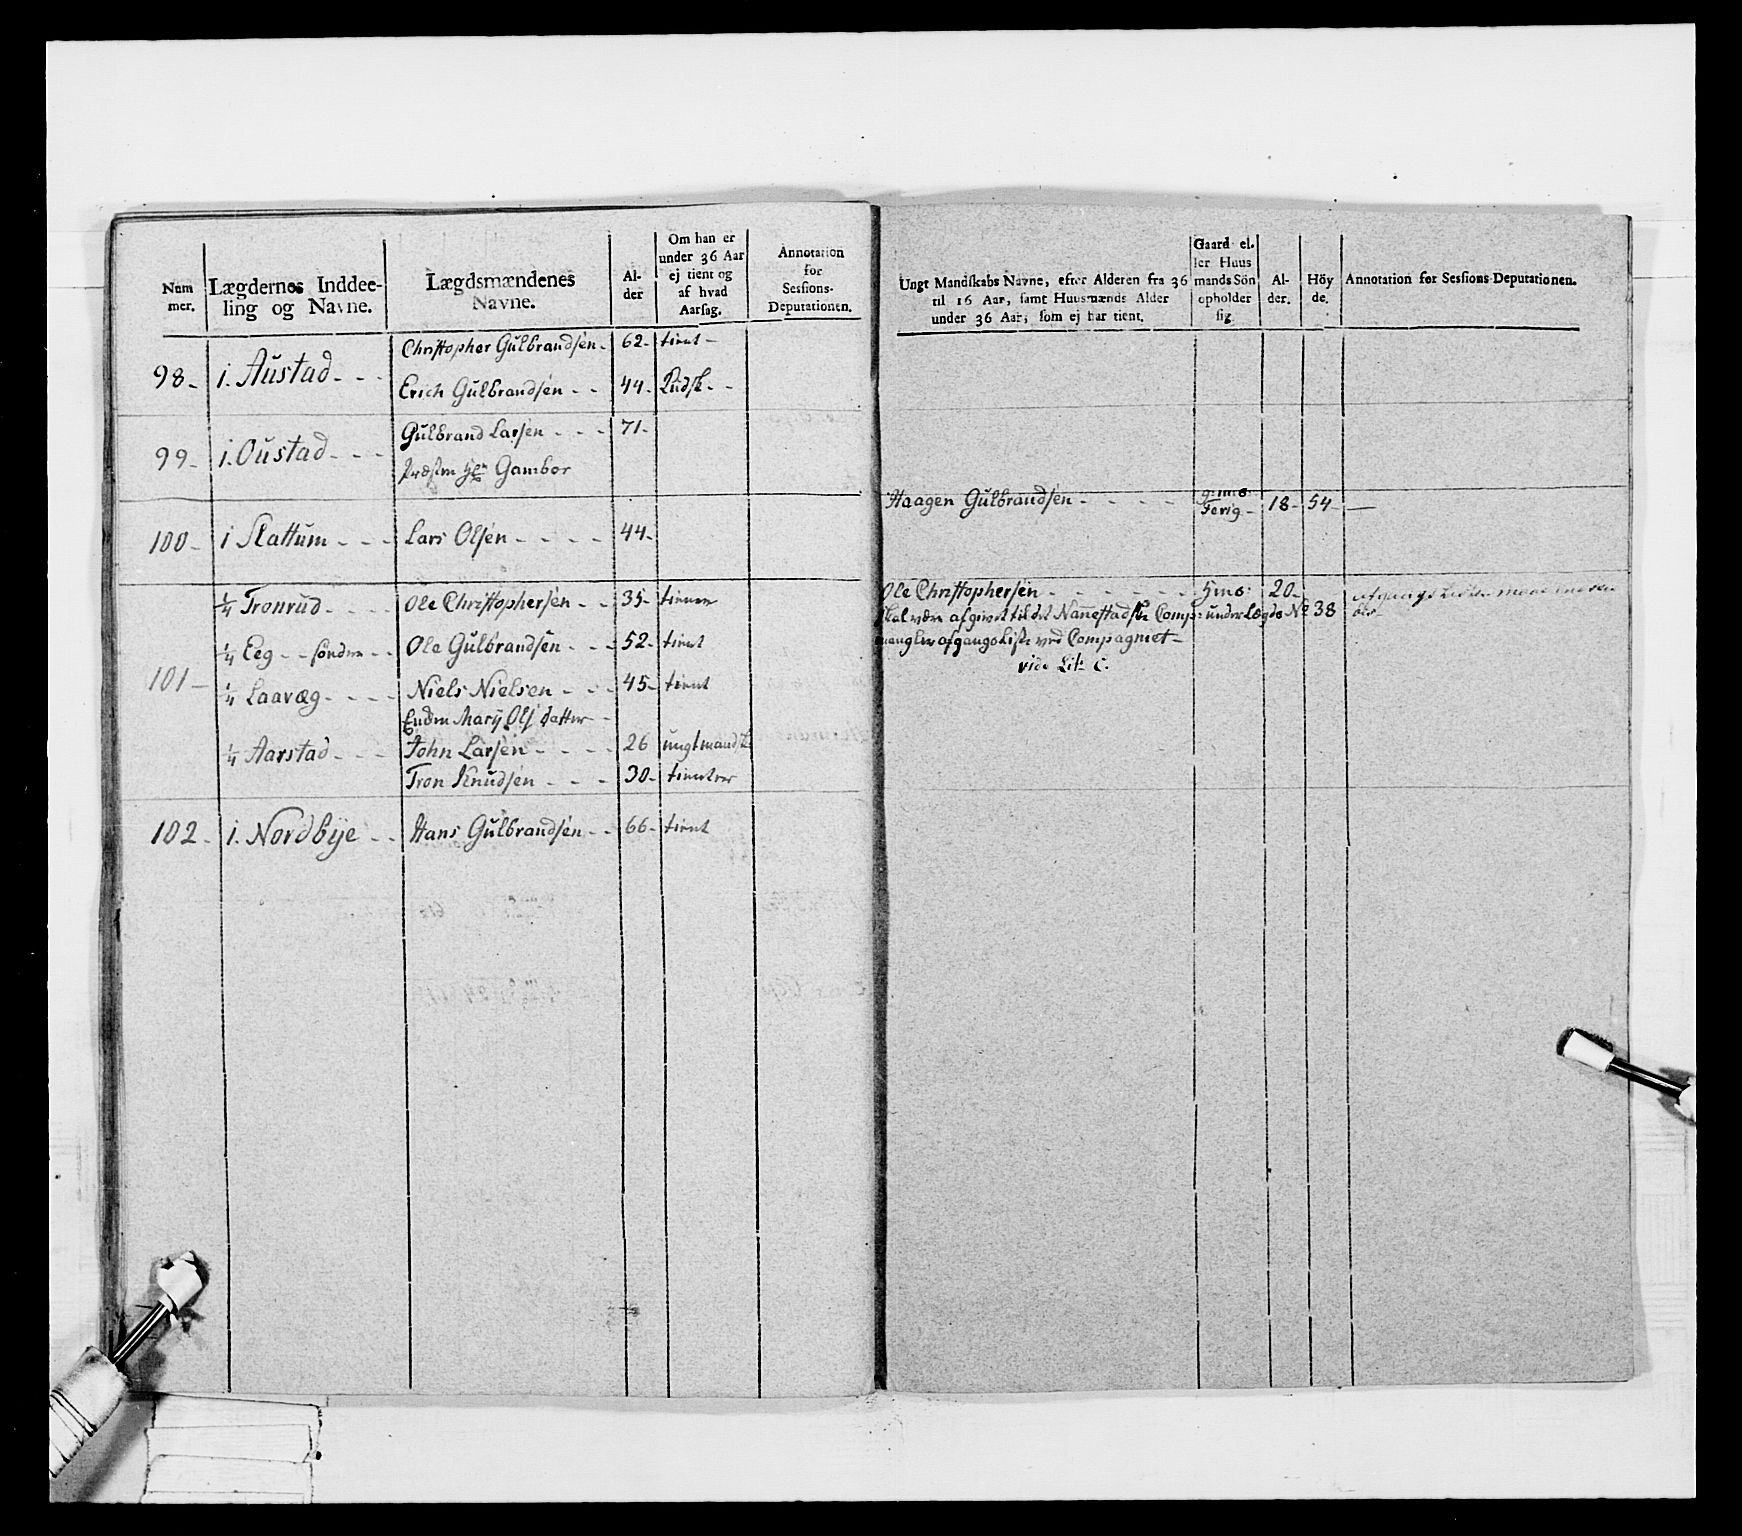 Num
mer.
Lægdernes Inddee-
ling og Navne.
Lægdsmændenes
Navne.
Al-
der
Om han er
under 36 Aar
ej tient og
af hvad
Aarsag.
Annotation
for
Sessions-
Deputationen.
98- 1. Austad - - - Christopher Gulbrandsen - 62- tient -
Erich Gulbrandsen - - 44-
99- 1. Oustad - - - Gulbrand Larsen - - - 71-
Gambor
100- 1 Slattum - - - Lars Olsen - - - - 44-
101- ¼ Tronrud - - - - Ole Christophersen - - 35- tiener
¼ Eeg - - söndre - - Ole Gulbrandsen - - - 52- tient
¼ Laavæg - - - - Niels Nielsen - - - 45- tient
Mary Ols datter - -
¼ Aarstad - - - John Larsen - - - - 26 ungtmandsk
Tron Knudsen - - - 30-
102- 1. Nordbÿe - - Hans Gulbrandsen - - 66- tient
Ungt Mandskabs Navne, efter Alderen fra 36
til 16 Aar, samt Huusmænds Alder
under 36 Aar, som ej har tient.
Gaard el.
ler Huus
mands Sön
opholder
sig
Al-
der.
Höy
de.
Annotation for Sessions-Deputationen.
Haagen Gulbrandsen - - - - - 18- 54- —
Ole Christophersen - - - - - - - hms: 20-
skal være afgivet til det Nannestadske Comp: under Lægds No 38
mangler afgangs Liste ved Compagniet -
vide Lit: C.